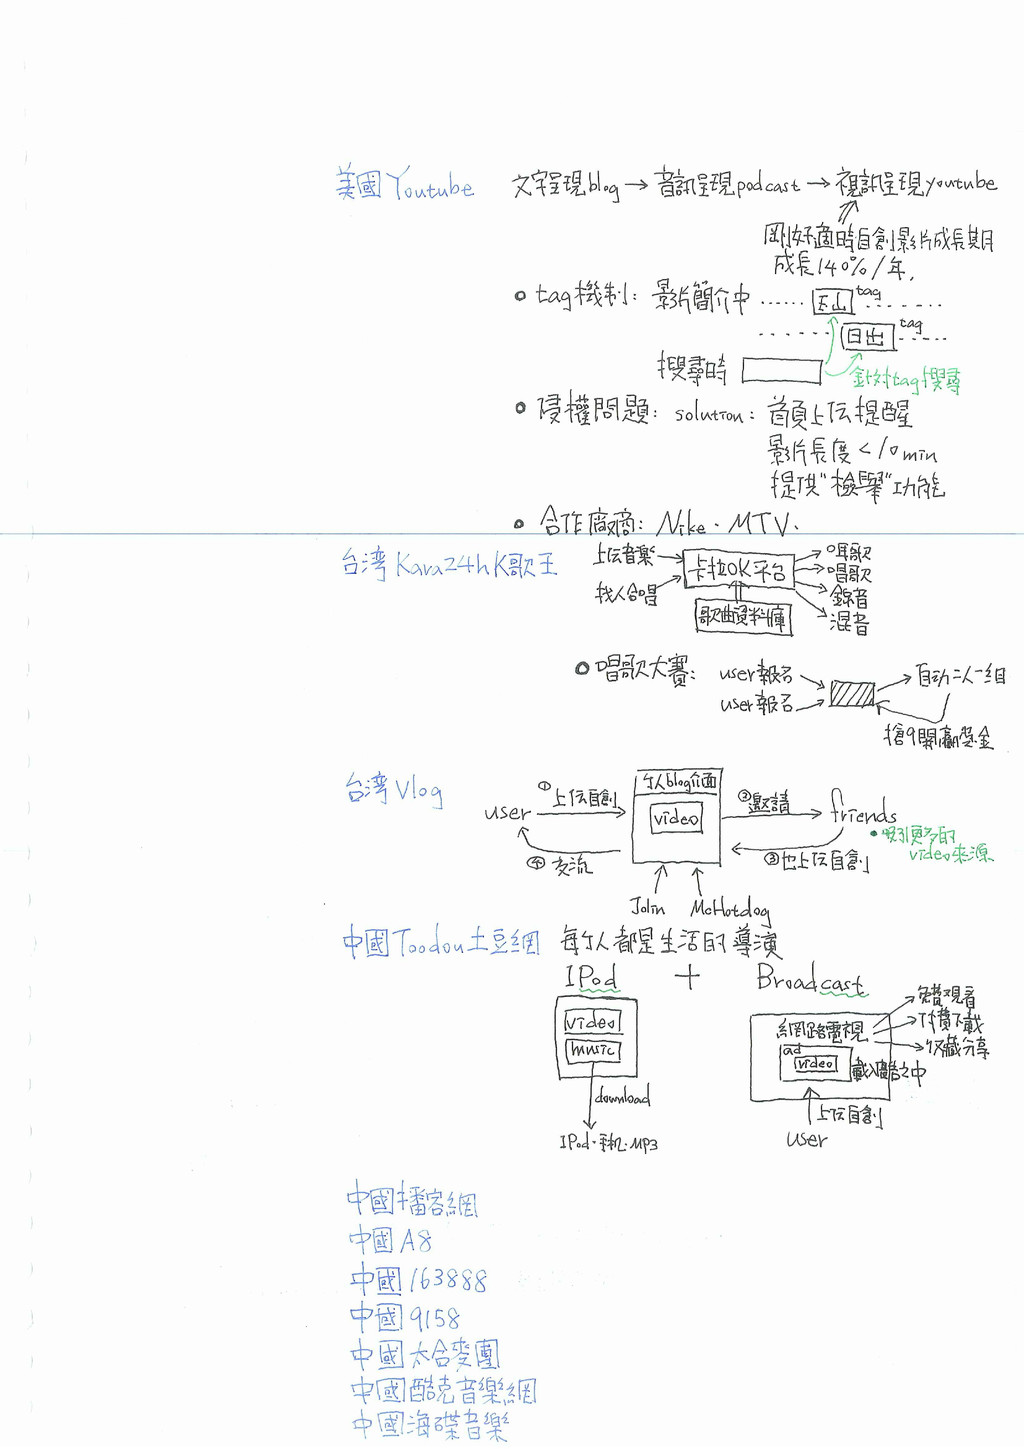 美國Youtube 文字呈現blog→音訊呈現podcast→視訊呈現youtube
剛好適時自創影片成長期
成長140%/年,
tag機制: 影片簡介中 ...... 玉山 tag
日出 tag
搜尋時
針對tag搜尋
侵權問題: solution: 首頁上伝提醒
影片長度<10min
提供"檢舉"功能
合作廠商: Nike·MTV·
台湾Kara24hK歌王
上伝音樂
找人合唱
卡拉OK平台
歌曲資料庫
唱歌
錄音
混音
唱歌大賽: user報名
user報名
自动二人一組
搶9關贏獎金
台湾Vlog
user
①上伝自創
个人blog介面
video
②邀請
friends
③也上伝自創
④交流
吸引更多的
video來源
Jolin McHotdog
中國Toodou土豆網 每个人都是生活的導演
IPod + Broadcast
video
music
download
IPod·手机·MP3
網路電視
ad
video
載入廣告之中
免費觀看
付費下載
收藏分享
上伝自創
user
中國播客網
中國A8
中國163888
中國9158
中國太合麥團
中國酷克音樂網
中國海碟音樂